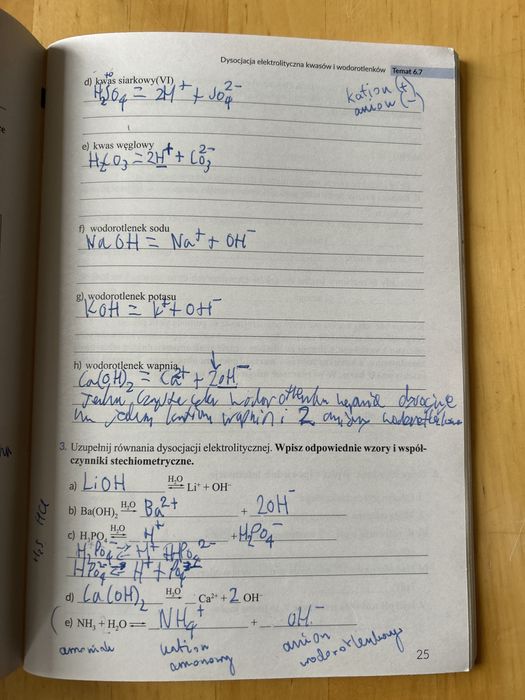 Dysocjacja elektrolityczna kwasów i wodorotlenków Temat 6.7
d) kwas siarkowy(VI)
H₂SO₄ = 2H⁺ + SO₄²⁻
kation (+)
anion (-)
e) kwas węglowy
H₂CO₃ = 2H⁺ + CO₃²⁻
f) wodorotlenek sodu
NaOH = Na⁺ + OH⁻
g) wodorotlenek potasu
KOH = K⁺ + OH⁻
h) wodorotlenek wapnia
Ca(OH)₂ = Ca²⁺ + 2OH⁻
Jedna cząsteczka wodorotlenku wapnia dysocjuje
na jeden kation wapnia i 2 aniony wodorotlenkowe
3. Uzupełnij równania dysocjacji elektrolitycznej. Wpisz odpowiednie wzory i współ-
czynniki stechiometryczne.
a) LiOH H₂O ⇌ Li⁺ + OH⁻
b) Ba(OH)₂ H₂O ⇌ Ba²⁺ + 2OH⁻
c) H₃PO₄ H₂O ⇌ H⁺ + H₂PO₄⁻
H₂PO₄⁻ ⇌ H⁺ + HPO₄²⁻
HPO₄²⁻ ⇌ H⁺ + PO₄³⁻
d) Ca(OH)₂ H₂O ⇌ Ca²⁺ + 2 OH⁻
e) NH₃ + H₂O ⇌ NH₄⁺ + OH⁻
amoniak kation anion
amonowy wodorotlenkowy
25